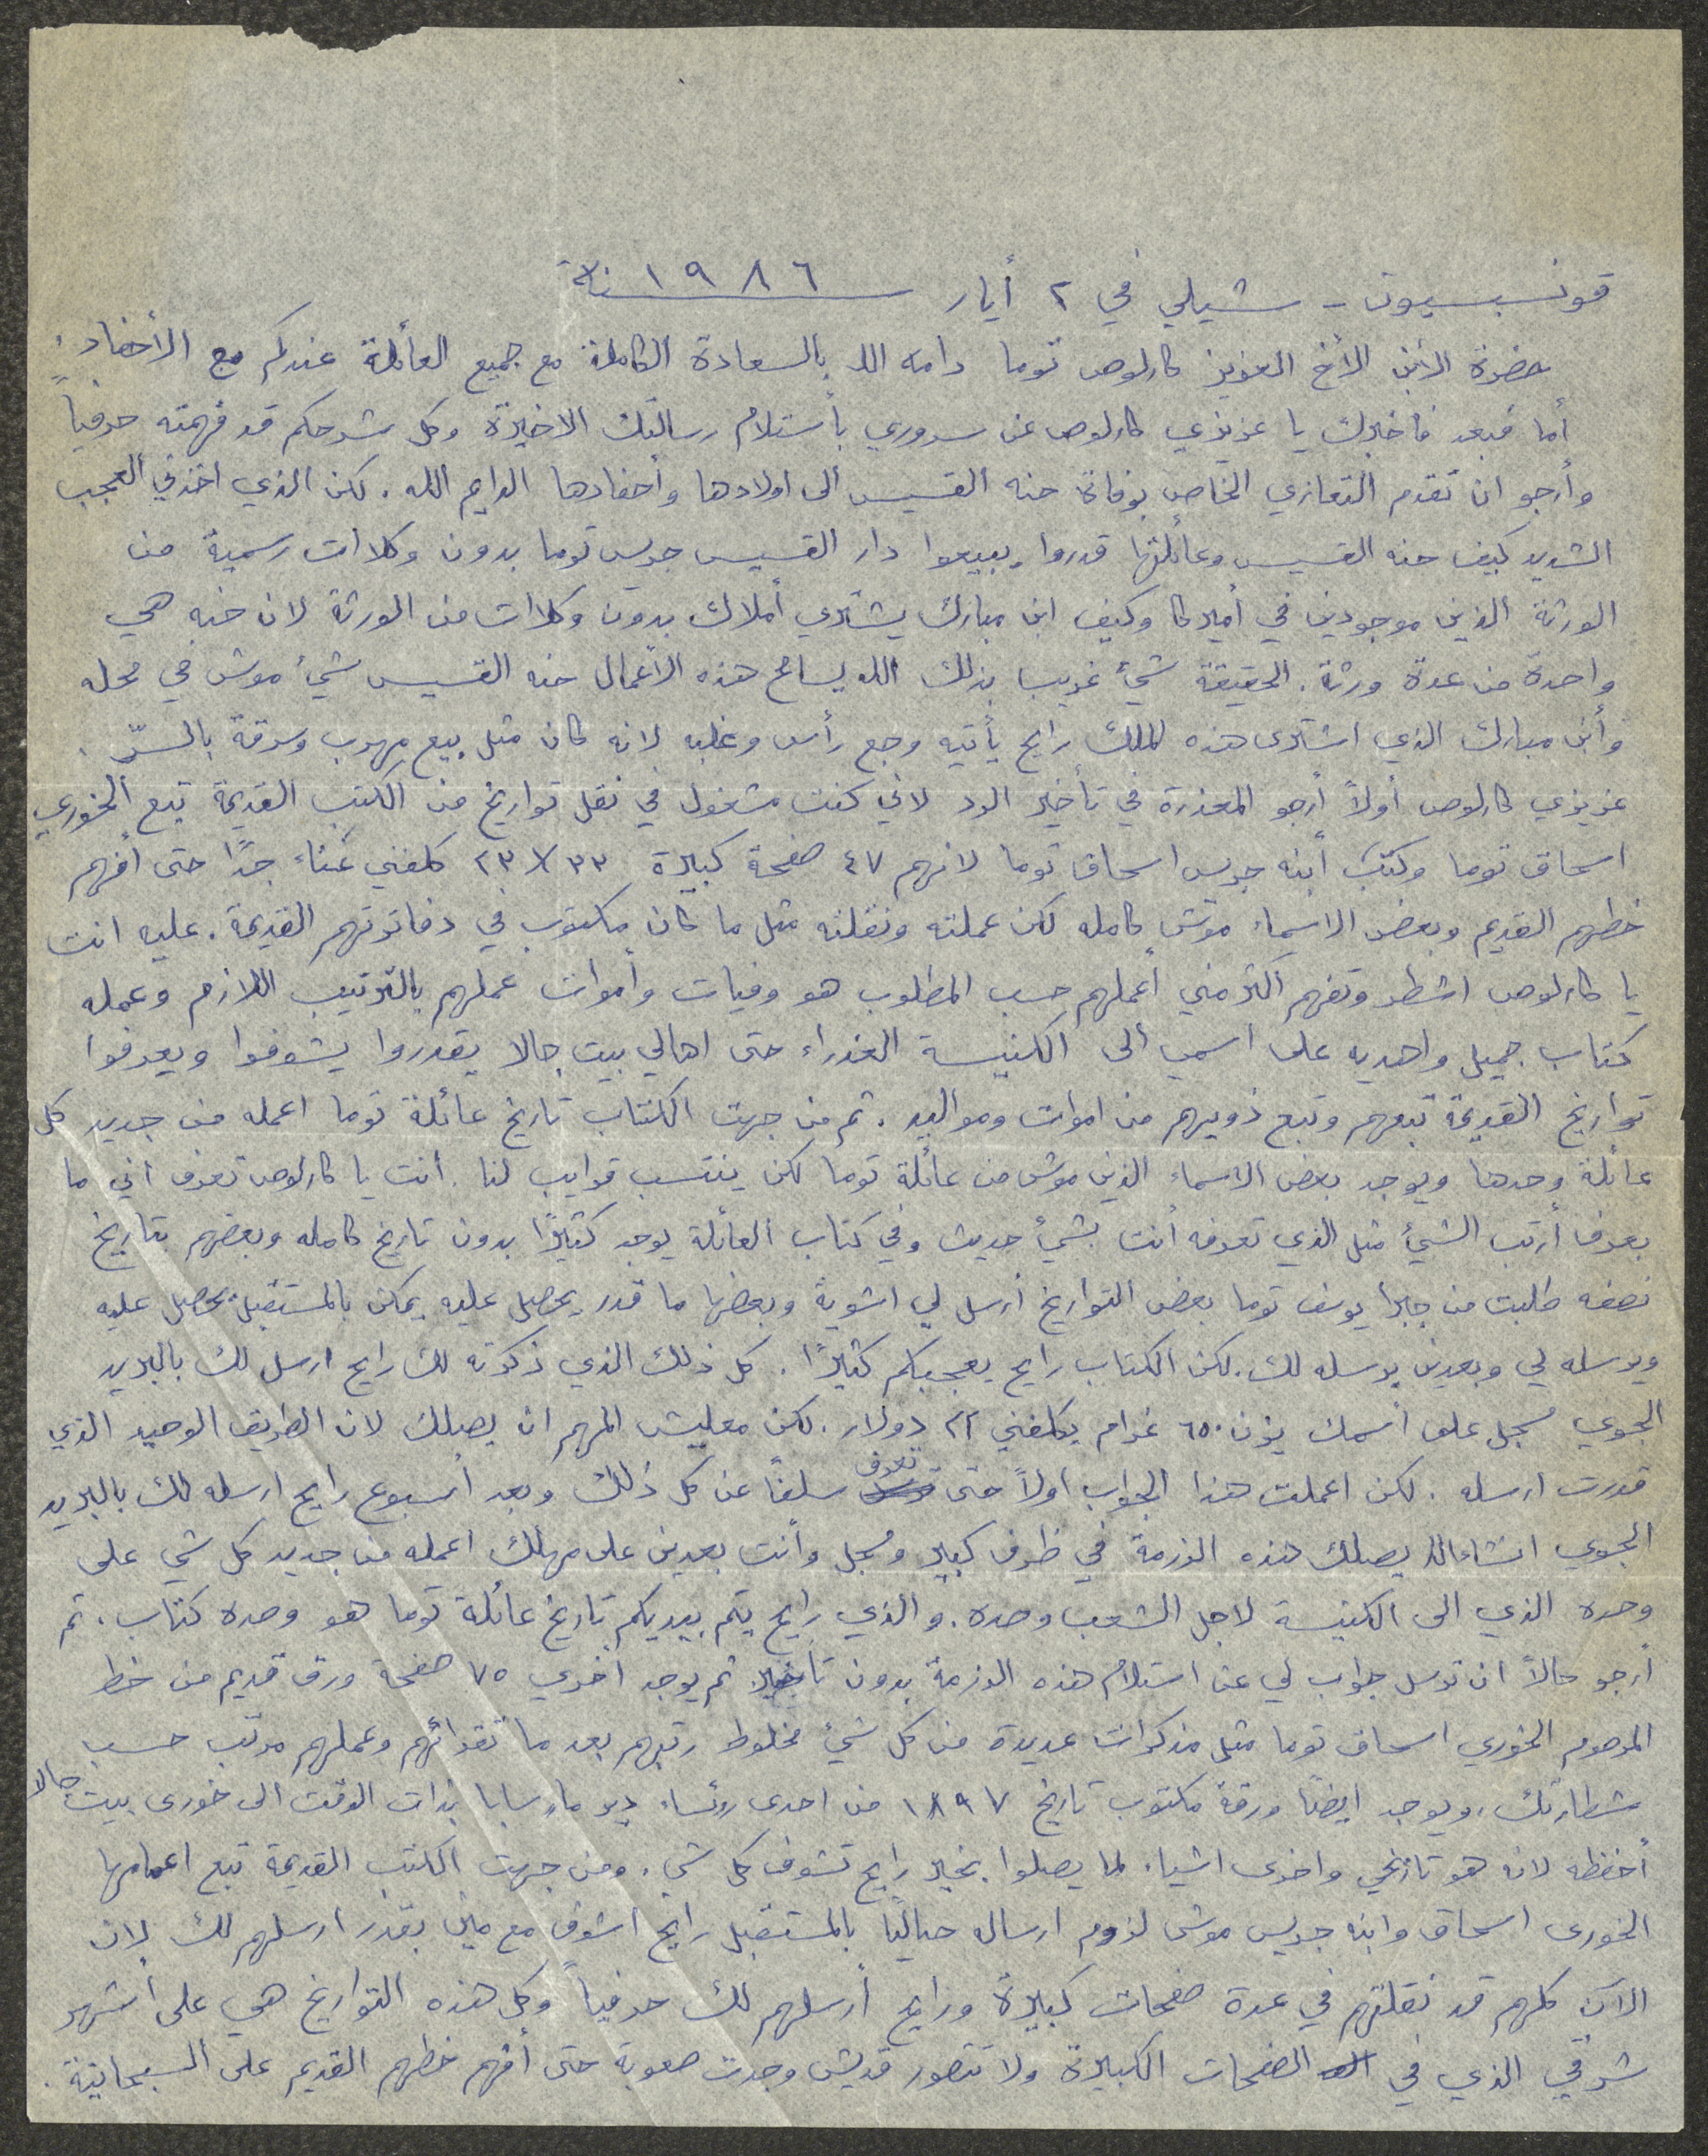 قونسبسيون - شيلي في ٢ أيار سنة ١٩٨٦
حضرة الابن الأخ العزيز كارلوص توما دامه الله بالسعادة الكاملة مع جميع العائلة عندكم مع الأحفاد.
أما فبعد فاخبرك يا عزيزي كارلوص عن سروري بأستلام رسالتك الاخيرة وكل شرحكم قد فهمته حرفياً
وأرجو ان تقدم التعازي الخاص بوفاة حنه القسيس الى اولادها وأحفادها الدايم الله. لكن الذي اخذني العجب
الشديد كيف حنه القسيس وعائلتها قدروا يبيعوا دار القسيس جريس توما بدون وكلاات رسمية من
الورثة الذين موجودين في أميركا وكيف ابن مبارك يشتري أملاك بدون وكلاات من الورثة لان حنه هي
واحدة من عدة ورثة. الحقيقة شيء غريب بذلك الله يسامح هذه الأعمال حنه القسيس شيء موش في محله
وأبن مبارك الذي اشترى هذه الملك رايح يأتيه وجع رأس وغلبه لانه كان مثل بيع مهرب وسرقة بالسرّ.
عزيزي كارلوص أولاً أرجو المعذرة في تأخير الرد لاني كنت مشغول في نقل تواريخ من الكتب القديمة تبع الخوري
اسحاق توما وكتب أبنه جريس اسحاق توما لانهم ٤٧ صفحة كبيرة ٣٣ X ٢٣ كلفني عناء جداً حتى أفهم
خطهم القديم وبعض الاسماء موش كامله لكن عملته ونقلته مثل ما كان مكتوب في دفاترتهم القديمة. عليه انت
يا كارلوص اشطر وتفهم اكثر مني أعملهم حسب المطلوب هو وفيات وأموات عملهم بالترتيب اللازم وعمله
كتاب جميل واهديه على اسمي الى الكنيسة العذراء حتى اهالي بيت جالا يقدروا يشوفوا ويعرفوا
تواريخ القديمة تبعهم وتبع ذويهم من اموات ومواليد. ثم من جهت الكتاب تاريخ عائلة توما اعمله من جديد كل
عائلة وحدها ويوجد بعض الاسماء الذين موش من عائلة توما لكن ينتسب قرايب لنا. أنت يا كارلوص تعرف اني ما
بعرف أرتب الشيء مثل الذي تعرفه أنت بشيء حديث وفي كتاب العائلة يوجد كثيرًا بدون تاريخ كامله وبعضهم تاريخ
نصفه طلبت من جبرا يوسف توما بعض التواريخ أرسل لي اشوية وبعضها ما قدر يحصل عليه يمكن بالمستقبل يحصل عليه
ويرسله لي وبعدين يرسله لك. لكن الكتاب رايح يعجبكم كثيرًا. كل ذلك الذي ذكرته لك رايح ارسل لك بالبريد
الجوي مسجل على أسمك يزن ٦٥٠ غرام يكلفني ٢٢ دولار. لكن معليش المهم ان يصلك لان الطريق الوحيد الذي
قدرت ارسله. لكن اعملت هذا الجواب اولاً حتى تعرف سلفاً عن كل ذلك وبعد أسبوع رايح ارسله لك بالبريد
الجوي انشاءالله يصلك هذه الرزمة في ظرف كبير ومسجل وأنت بعدين على مهلك اعمله من جديد كل شي على
وحده الذي الى الكنيسة لاجل الشعب وحده. والذي رايح يتم بيديكم تاريخ عائلة توما هو وحده كتاب. ثم
أرجو حالاً ان ترسل جواب لي عن استلام هذه الرزمة بدون تاخير. ثم يوجد اخرى ٧٥ صفحة ورق قديم من خط
المرحوم الخوري اسحاق توما مثل مذكرات عديدة من كل شيء مخلوط رتبهم بعد ما تقرائهم وعملهم مرتب حسب
شطارتك، ويوجد ايضاً ورقة مكتوب تاريخ ١٨٩٧ من احدى رؤساء دير مار سابا بذات الوقت الى خوري بيت جالا
أحفظه لانه هو تاريخي واخرى اشياء لما يصلوا بخير رايح تشوف كل شي. ومن جهت الكتب القديمة تبع اعمامها
الخوري اسحاق وابنه جريس موش لزوم ارساله حالياً بالمستقبل رايح اشوف مع مين بقدر ارسلهم لك لان
الآن كلهم قد نقلتهم في عدة صفحات كبيرة ورايح أرسلهم لك حرفياً وكل هذه التواريخ هي على أشهر
شرقي الذي في الصفحات الكبيرة ولا تتصور قديش وجدت صعوبة حتى أفهم خطهم القديم على السبحانية.